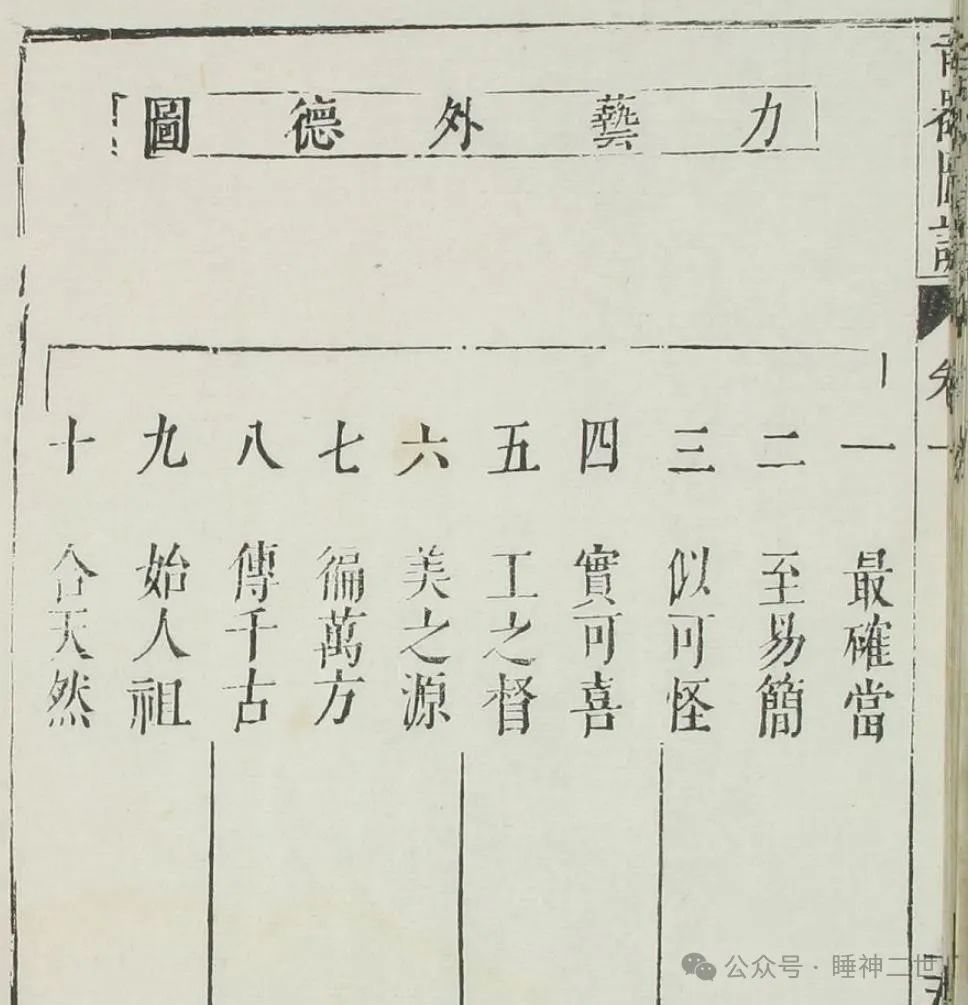 力藝外德圖
一 最確當
二 至易簡
三 似可怪
四 實可喜
五 工之督
六 美之源
七 徧萬方
八 傳千古
九 始人祖
十 合天然
公众号·睡神二世